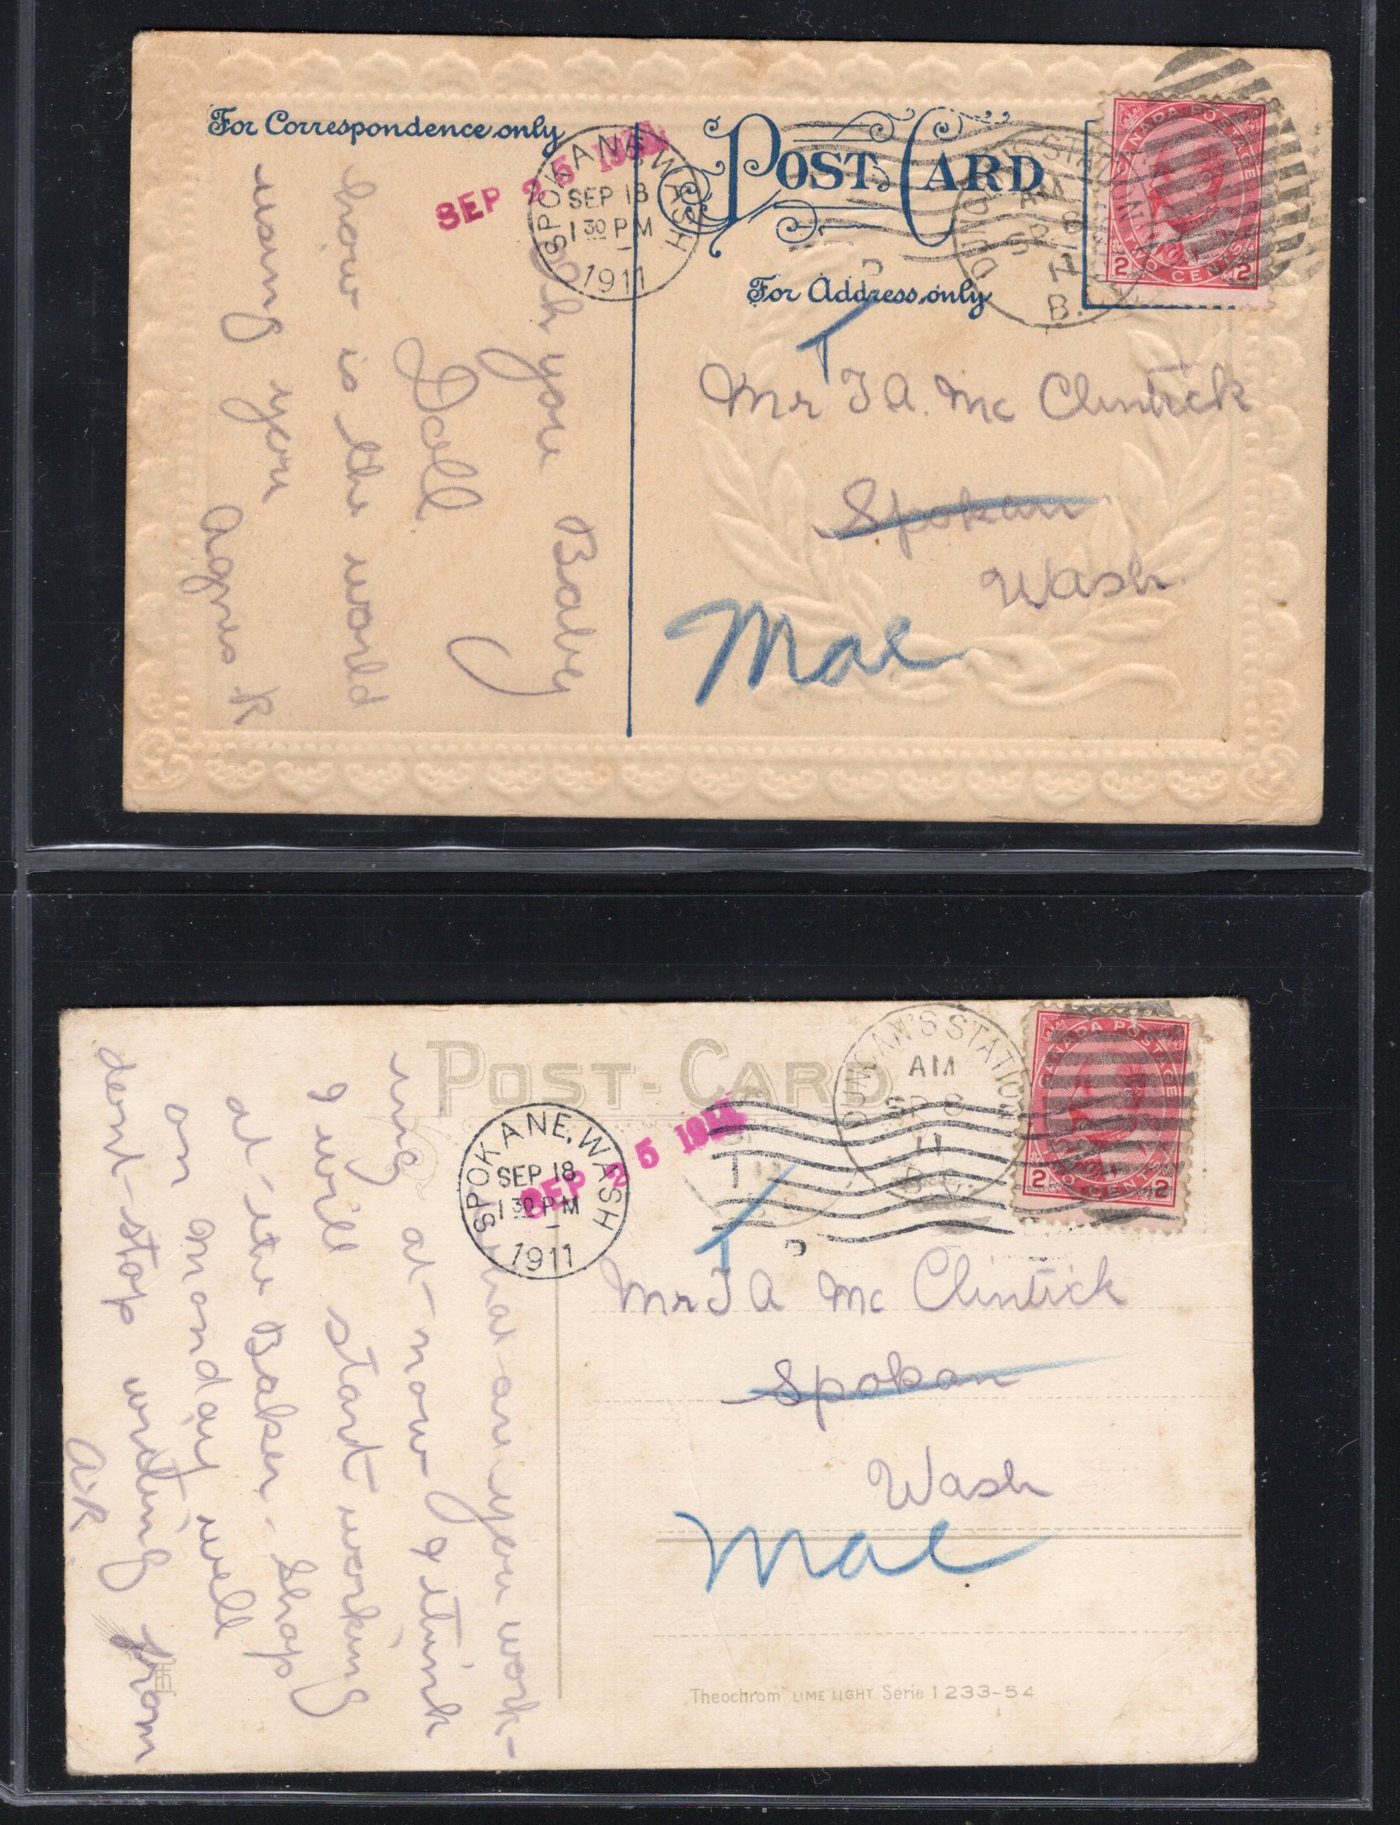 For Correspondence only
POST CARD
For Address only
SPOKANE, WASH
SEP 18
1 30 PM
1911
SEP 25 1911
DUNCAN'S STATION
AM
SP 8
11
B.
CANADA POSTAGE
2 TWO CENTS 2
T
Mr J A. Mc Clintick
Spokan
Wash
Mae
oh you Baby
Doll.
how is the world
using you
Agnes R
POST-CARD
SPOKANE, WASH
SEP 18
1 30 PM
1911
SEP 25 1911
DUNCAN'S STATION
AM
SP 8
11
B.C.
CANADA POSTAGE
2 TWO CENTS 2
T
Mr J A Mc Clintick
Spokan
Wash
Mae
what are you work-
ing at now I think
I will start working
at the Baker-Shop
on monday well
dont stop writing from
A.R.
Theochrom LIME LIGHT Serie 1233-54